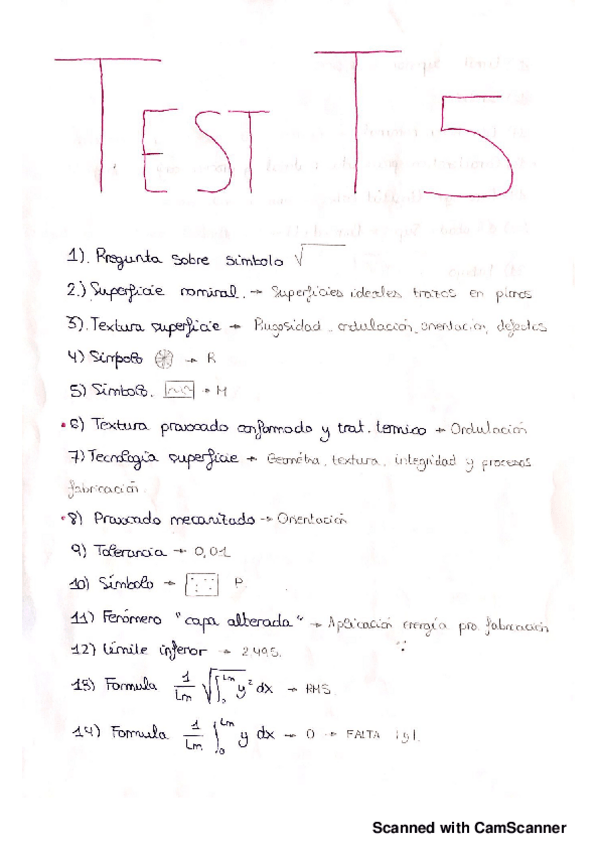 TEST T5
1). Pregunta sobre simbolo √
2.) Superficie nominal. → Superficies ideales trazos en planos
3). Textura superficie → Rugosidad, ondulación, orientación, defectos
4) Simbolo → R
5) Simbolo. → M
6) Textura provocado conformado y trat. termico → Ondulación
7) Tecnología superficie → Geometria, textura, integridad y procesos
fabricación.
8) Provocado mecanizado → Orientación
9) Tolerancia → 0,01
10) Símbolo → P.
11) Fenómeno "capa alterada" → Aplicación energía pro. fabricación
12) Límite inferior → 2.495.
13) Formula 1/Lm √∫₀^Lm y² dx → RMS.
14) Formula 1/Lm ∫₀^Lm y dx → 0 → FALTA |y|.
Scanned with CamScanner